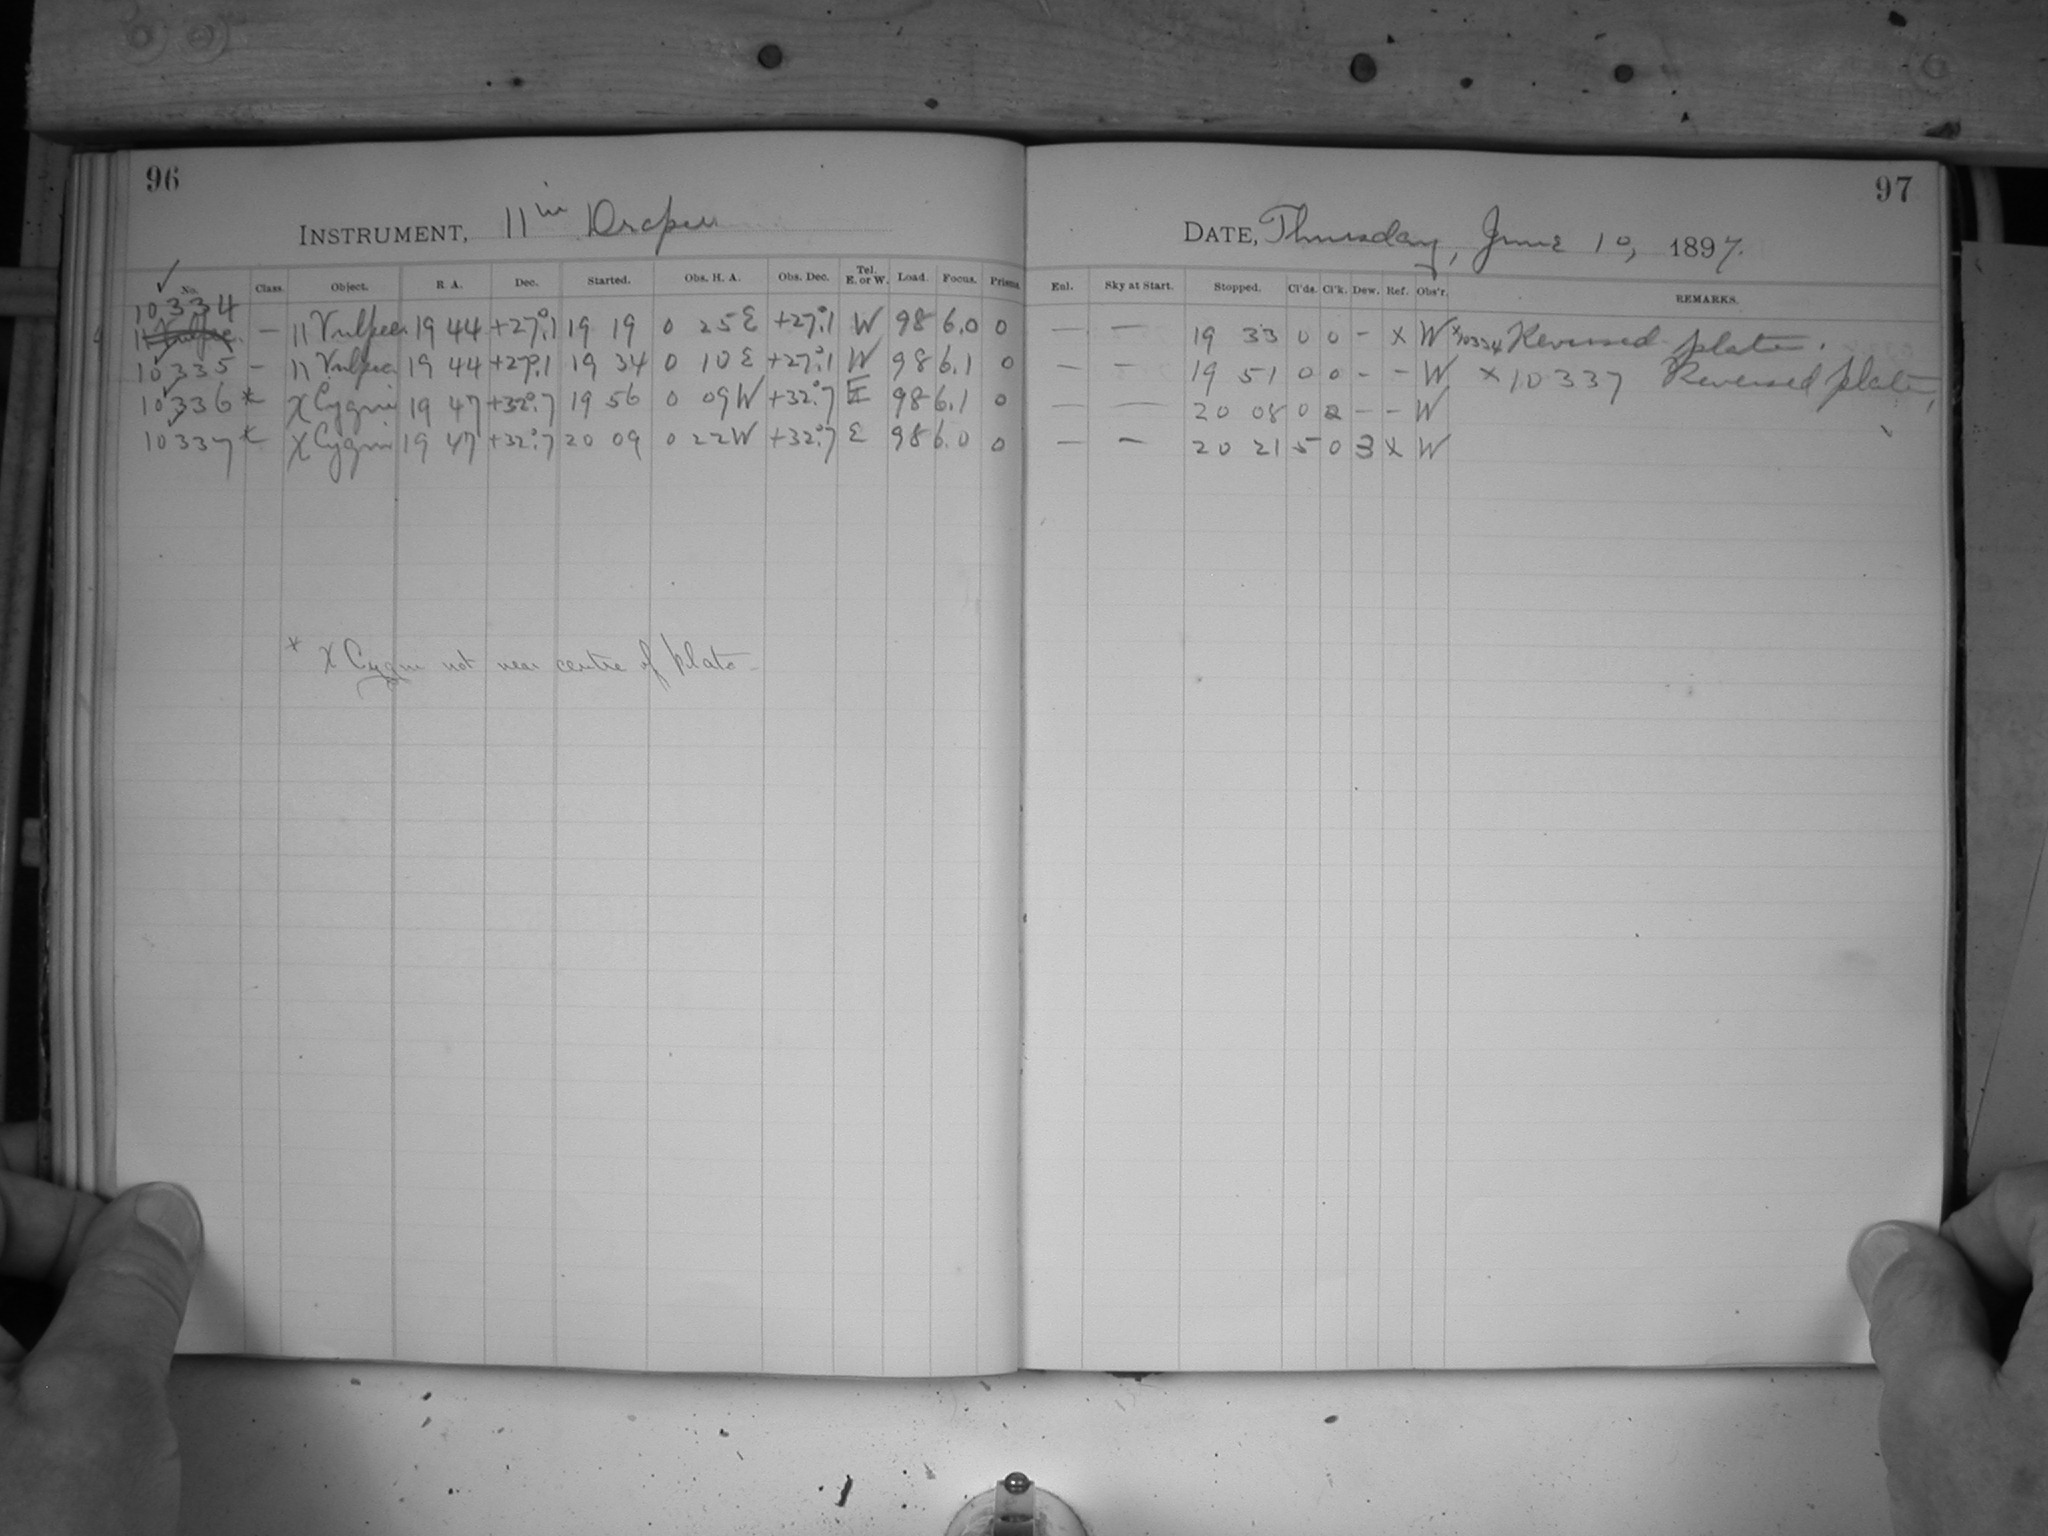 96
97
INSTRUMENT, 11 in Draper
DATE, Thursday, June 10, 1897.
No. Class. Object. R. A. Dec. Started. Obs. H. A. Obs. Dec. Tel. E. or W. Load. Focus. Prisms. Enl. Sky at Start. Stopped. Cl'ds. Cl'k. Dew. Ref. Obs'r. REMARKS.
10334 – 11 Vulpec 19 44 +27°.1 19 19 0 25 E +27°.1 W 98 6.0 0 — — 19 33 0 0 - x W x 10334 Reversed plate.
10335 – 11 Vulpec 19 44 +27°.1 19 34 0 10 E +27°.1 W 98 6.1 0 — — 19 51 0 0 - - W x 10337 Reversed plate,
10336 * χ Cygni 19 47 +32°.7 19 56 0 09 W +32°.7 E 98 6.1 0 — — 20 08 0 2 - - W
10337 * χ Cygni 19 47 +32°.7 20 09 0 22 W +32°.7 E 98 6.0 0 — — 20 21 5 0 3 x W
* χ Cygni not near centre of plate –